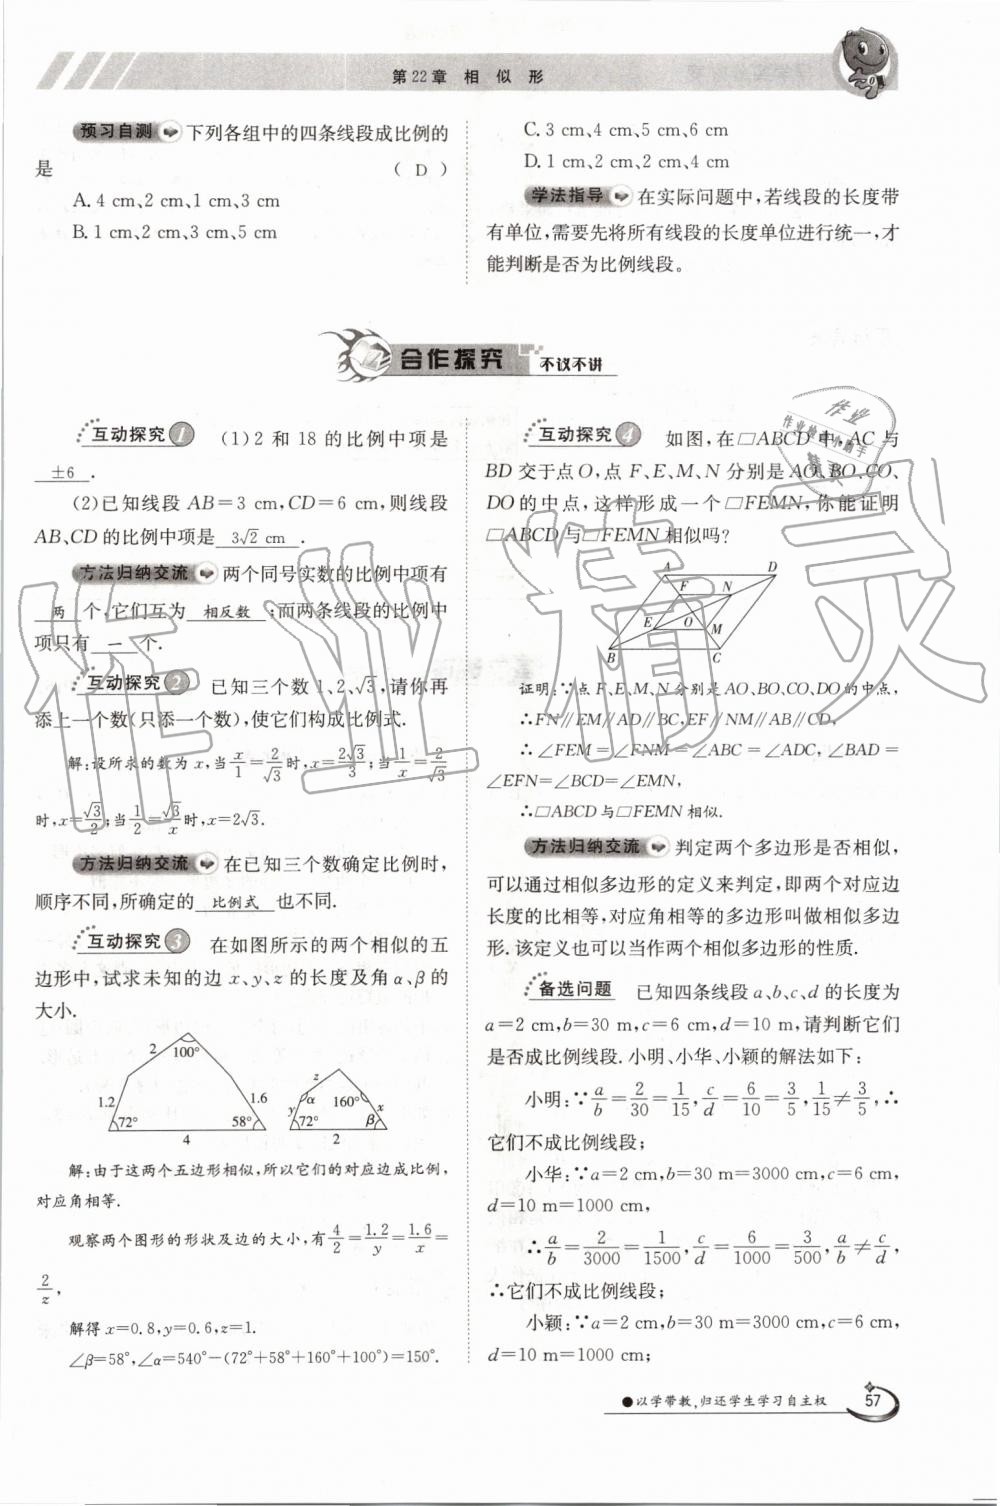 第22章 相 似 形
预习自测 下列各组中的四条线段成比例的
是 ( D )
A.4 cm、2 cm、1 cm、3 cm
B.1 cm、2 cm、3 cm、5 cm
C.3 cm、4 cm、5 cm、6 cm
D.1 cm、2 cm、2 cm、4 cm
学法指导 在实际问题中,若线段的长度带
有单位,需要先将所有线段的长度单位进行统一,才
能判断是否为比例线段。
合作探究 不议不讲
互动探究1 (1)2 和 18 的比例中项是
±6 .
(2)已知线段 AB=3 cm,CD=6 cm,则线段
AB、CD 的比例中项是 3√2 cm .
方法归纳交流 两个同号实数的比例中项有
两 个,它们互为 相反数 ;而两条线段的比例中
项只有 一 个.
互动探究2 已知三个数 1、2、√3,请你再
添上一个数(只添一个数),使它们构成比例式.
解:设所求的数为 x,当x/1=2/√3时,x=2√3/3;当1/x=2/√3
时,x=√3/2;当1/2=√3/x时,x=2√3.
方法归纳交流 在已知三个数确定比例时,
顺序不同,所确定的 比例式 也不同.
互动探究3 在如图所示的两个相似的五
边形中,试求未知的边 x、y、z 的长度及角 α、β 的
大小.
2 100° 1.2 1.6 72° 58° 4
z α 160° x y 72° β 2
解:由于这两个五边形相似,所以它们的对应边成比例,
对应角相等.
观察两个图形的形状及边的大小,有4/2=1.2/y=1.6/x=
2/z,
解得 x=0.8,y=0.6,z=1.
∠β=58°,∠α=540°−(72°+58°+160°+100°)=150°.
互动探究4 如图,在□ABCD 中,AC 与
BD 交于点 O,点 F、E、M、N 分别是 AO、BO、CO、
DO 的中点,这样形成一个□FEMN,你能证明
□ABCD 与□FEMN 相似吗?
A D F N E O M B C
证明:∵点 F、E、M、N 分别是 AO、BO、CO、DO 的中点,
∴FN∥EM∥AD∥BC,EF∥NM∥AB∥CD,
∴∠FEM=∠FNM=∠ABC=∠ADC,∠BAD=
∠EFN=∠BCD=∠EMN,
∴□ABCD 与□FEMN 相似.
方法归纳交流 判定两个多边形是否相似,
可以通过相似多边形的定义来判定,即两个对应边
长度的比相等,对应角相等的多边形叫做相似多边
形.该定义也可以当作两个相似多边形的性质.
备选问题 已知四条线段 a、b、c、d 的长度为
a=2 cm,b=30 m,c=6 cm,d=10 m,请判断它们
是否成比例线段.小明、小华、小颖的解法如下:
小明:∵a/b=2/30=1/15,c/d=6/10=3/5,1/15≠3/5,∴
它们不成比例线段;
小华:∵a=2 cm,b=30 m=3000 cm,c=6 cm,
d=10 m=1000 cm,
∴a/b=2/3000=1/1500,c/d=6/1000=3/500,a/b≠c/d,
∴它们不成比例线段;
小颖:∵a=2 cm,b=30 m=3000 cm,c=6 cm,
d=10 m=1000 cm;
●以学带教,归还学生学习自主权 57
作业精灵